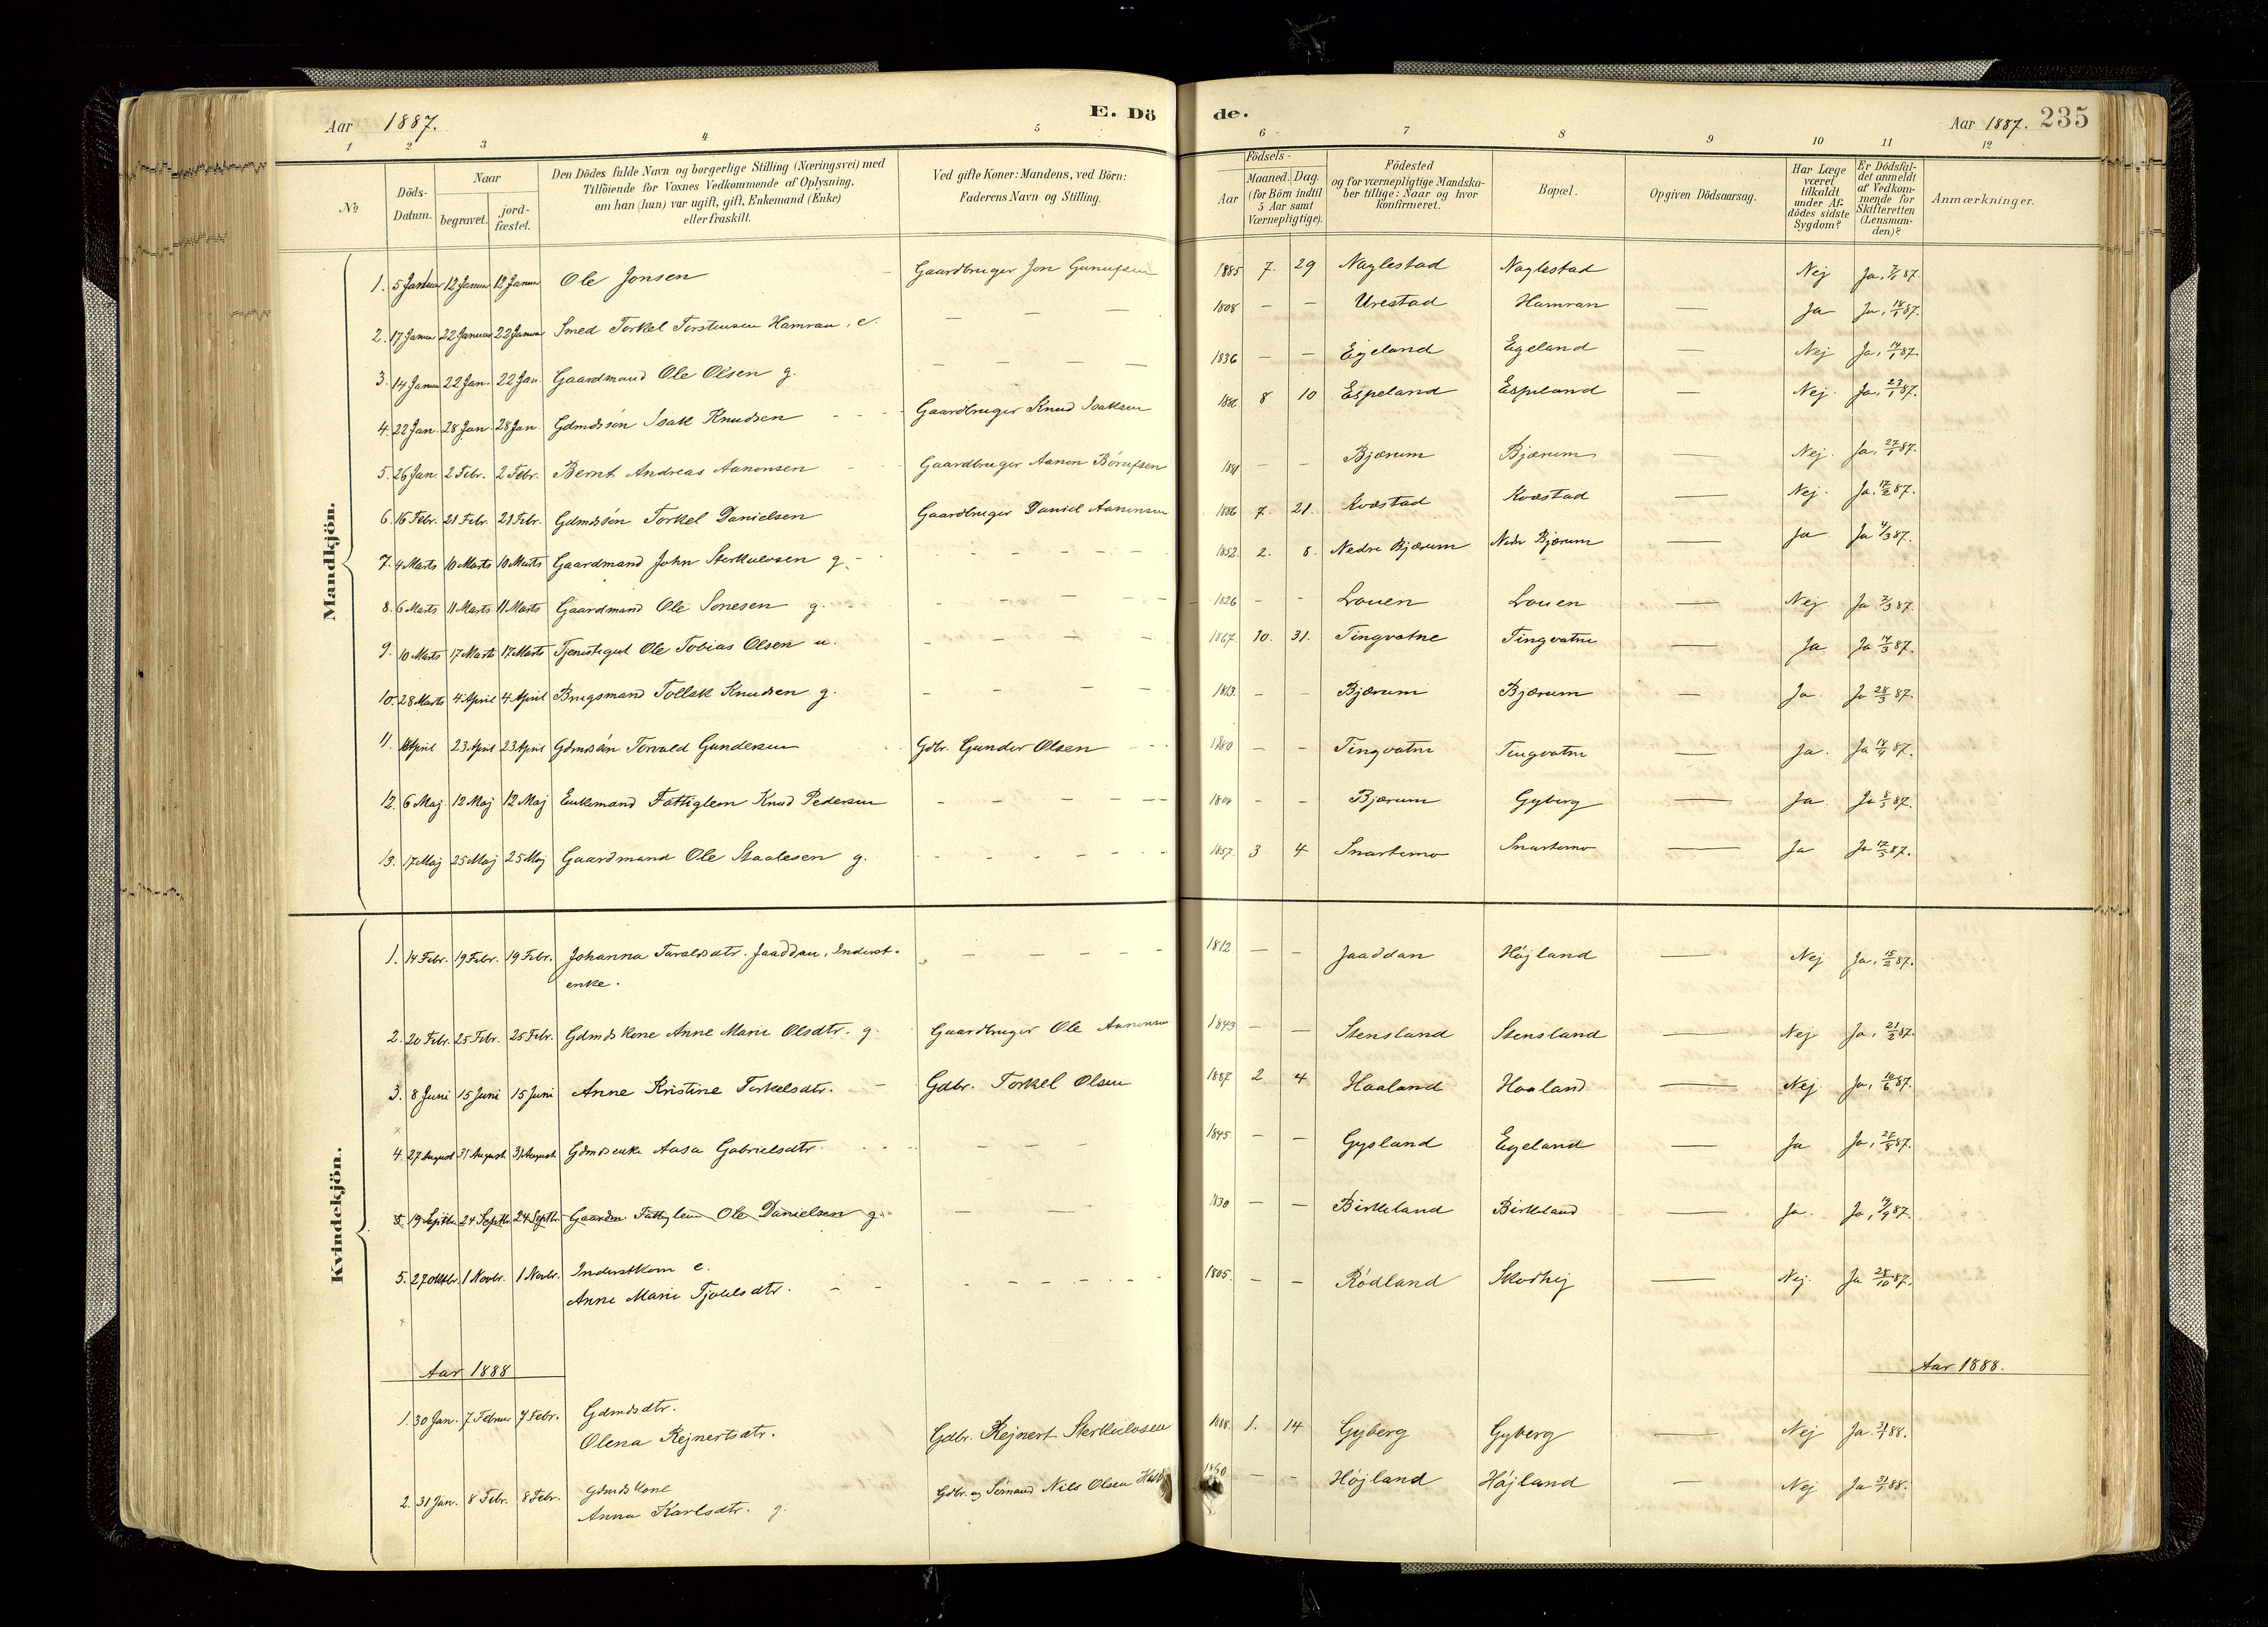 Aar 1887.
E. Dö
de.
Aar 1887. 235
1 2 3 4 5 6 7 8 9 10 11 12
No
Döds-Datum.
Naar
begravet.
jord-fæstet.
Den Dödes fulde Navn og borgerlige Stilling (Næringsvei) med
Tilföiende for Voxnes Vedkommende af Oplysning,
om han (hun) var ugift, gift, Enkemand (Enke)
eller fraskilt.
Ved gifte Koner: Mandens, ved Börn:
Faderens Navn og Stilling.
Födsels-
Aar
Maaned. Dag.
(for Börn indtil
5 Aar samt
Værnepligtige).
Födested
og for værnepligtige Mandska-
ber tillige: Naar og hvor
konfirmeret.
Bopæl.
Opgiven Dödsaarsag.
Har Læge
været
tilkaldt
under Af-
dödes sidste
Sygdom?
Er Dödsfal-
det anmeldt
af Vedkom-
mende for
Skifteretten
(Lensman-
den)?
Anmærkninger.
Mandkjön.
1. 5 Januar 12 Januar 12 Januar Ole Jonsen Gaardbruger Jon 1885 7. 29 Naglestad Naglestad Nej Ja, 7/1 87.
2. 17 Januar 22 Januar 22 Januar Smed Torkel Torstensen Hamran, e. — — — 1808 — — Urestad Hamran — Ja Ja, 18/1 87.
3. 14 Januar 22 Jan. 22 Jan. Gaardmand Ole Olsen g. — — — — 1836 — — Egeland Egeland — Nej Ja, 14/1 87.
4. 22 Jan. 28 Jan. 28 Jan. Gdmdssön Isak Knudsen Gaardbruger Knud Isaksen 8 10 Espeland Espeland — Nej. Ja, 23/1 87.
5. 26 Jan. 2 Febr. 2 Febr. Bernt Andreas Aanonsen Gaardbruger Aanon 1881 — — Bjærum Bjærum — Nej. Ja, 27/1 87.
6. 16 Febr. 21 Febr. 21 Febr. Gdmdssön Torkel Danielsen Gaardbruger Daniel Aanonsen 1886 7. 21. Kvæstad Kvæstad — Nej. Ja, 17/2 87.
7. 4 Marts 10 Marts 10 Marts Gaardmand John Sterkulvsen g. — — — — 1852. 2. 8. Nedre Bjærum Nedr Bjærum — Ja Ja 4/3 87.
8. 6 Marts 11 Marts 11 Marts Gaardmand Ole Sonesen g. — — — — 1826 — — Louen Louen — Nej Ja 7/3 87.
9. 10 Marts 17 Marts 17 Marts Tjenestegut Ole Tobias Olsen u. — — — — 1867. 10. 31. Tingvatne Tingvatne — Ja Ja 14/3 87.
10. 28 Marts 4 April 4 April Brugsmand Tollak Knudsen g. — — — — 1813. — — Bjærum Bjærum — Ja. Ja 28/3 87.
11. 18 April 23 April 23 April Gdmdssön Torvald Gundersen Gdbr. Gunder Olsen 1880 — — Tingvatne Tingvatne — Ja. Ja 18/4 87.
12. 6 Maj 12 Maj 12 Maj Enkemand Fattiglem Knud Pedersen — — — — — — Bjærum Gyberg — Ja. Ja 8/5 87.
13. 17 Maj 25 Maj 25 Maj Gaardmand Ole Staalesen g. — — — — 1857. 3 4 Snartemo Snartemo — Ja Ja 17/5 87.
Kvindekjön.
1. 14 Febr. 19 Febr. 19 Febr. Johanna Taraldsdtr. Jaaddan, Inderst- — — — — 1812 — — Jaaddan Höjland — Nej Ja, 15/2 87.
enke.
2. 20 Febr. 25 Febr. 25 Febr. Gdmds Kone Anne Marie Olsdtr. g. Gaardbruger Ole Aanonsen 1843 — — Stensland Stensland — Nej Ja, 21/2 87.
3. 8 Juni 15 Juni 15 Juni Anne Kristine Torkelsdtr. — Gdbr. Torkel Olsen 1887 2 4 Haaland Haaland — Nej. Ja, 10/6 87.
4. 27 August 31 August 31 August Gdmdsenke Aasa Gabrielsdtr. — — — — 1845. — — Gysland Egeland — Ja Ja, 28/8 87.
5. 19 Septbr. 24 Septbr. 24 Septbr. Gaardm Fattiglem Ole Danielsen g. — — 1830 — — Birkeland Birkeland — Ja. Ja, 19/9 87.
5. 27 Oktbr. 1 Novbr. 1 Novbr. Inderstkone e. 1805. — — Rödland Skodhej — Nej. Ja 28/10 87.
Anne Marie Tjøelsdtr. — — — — —
Aar 1888
Aar 1888.
1. 30 Jan. 7 Februar 7 Febr. Gdmdsdtr.
Olena Rejnertsdtr. Gdbr. Rejnert Sterkulvsen 1888. 1. 14 Gyberg Gyberg — Nej Ja 31/1 88.
2. 31 Jan. 8 Febr. 8 Febr. Gdmdskone
Anna Karlsdtr. g. Gdbr. og Sömand Nils Olsen — — Höjland Höjland — Nej Ja 31/1 88.